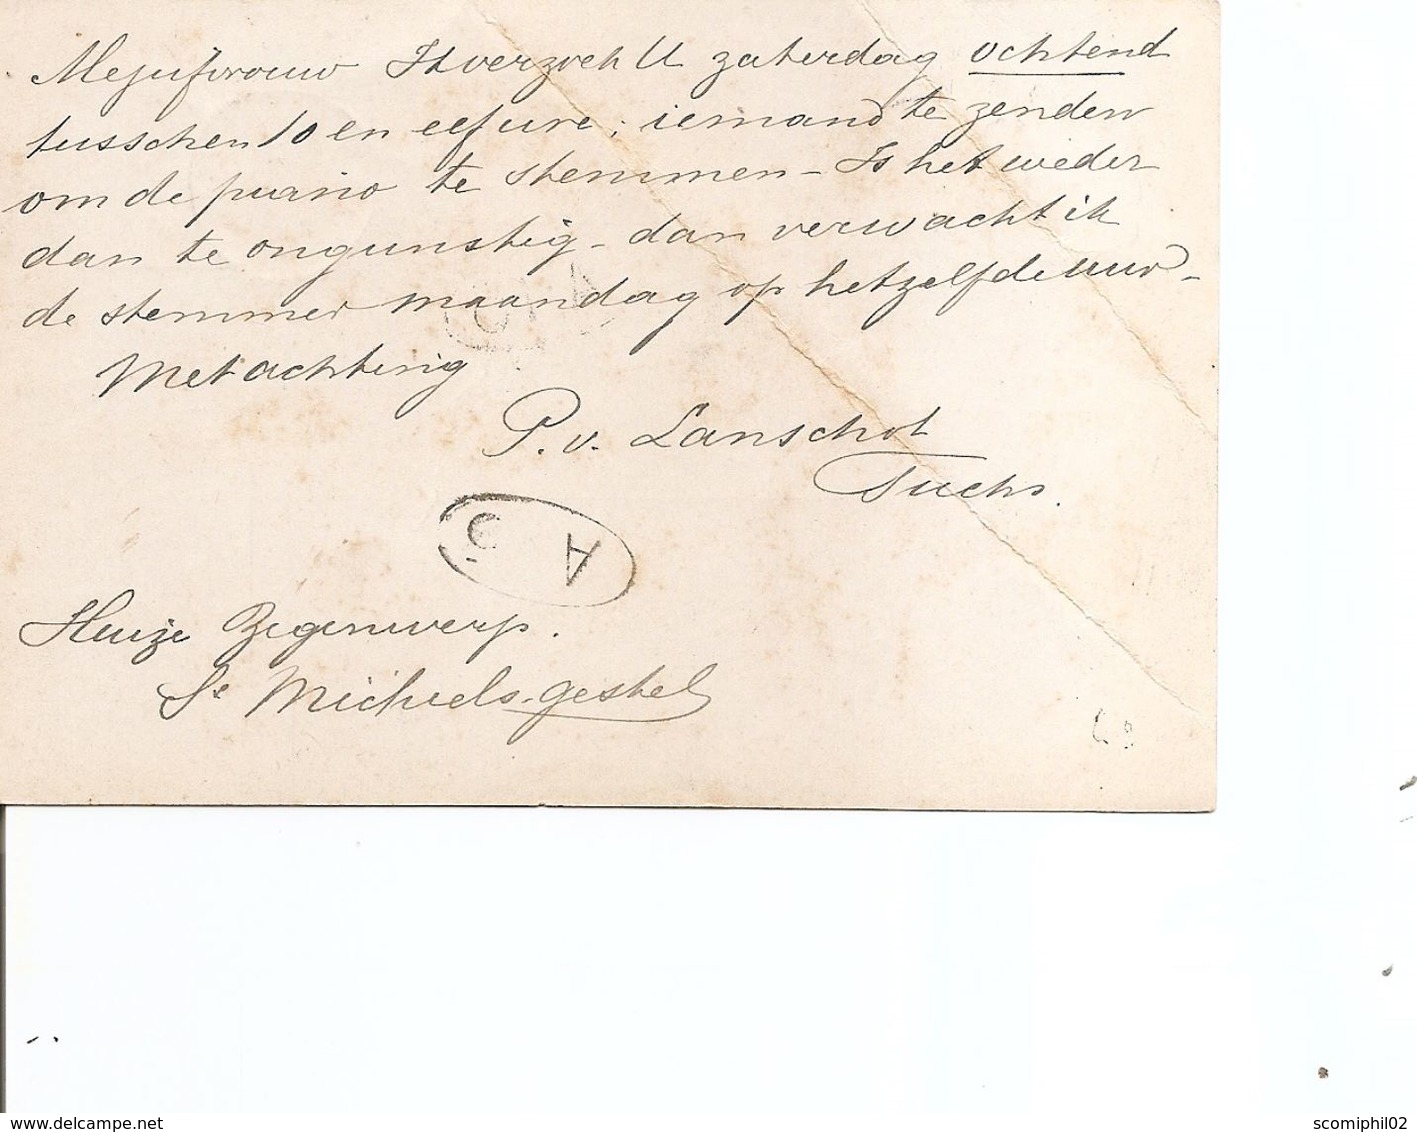 Mejufvrouw Ik verzoek U zaterdag ochtend
tusschen 10 en elf ure; iemand te zenden
om de piano te stemmen - Is het weder
dan te ongunstig - dan verwacht ik
de stemmer maandag op hetzelfde uur -
Met achting
P. v. Lanschot
Fuchs.
A 5
Huize Zegenwerp.
St Michiels-gestel
© delcampe.net
scomiphil02